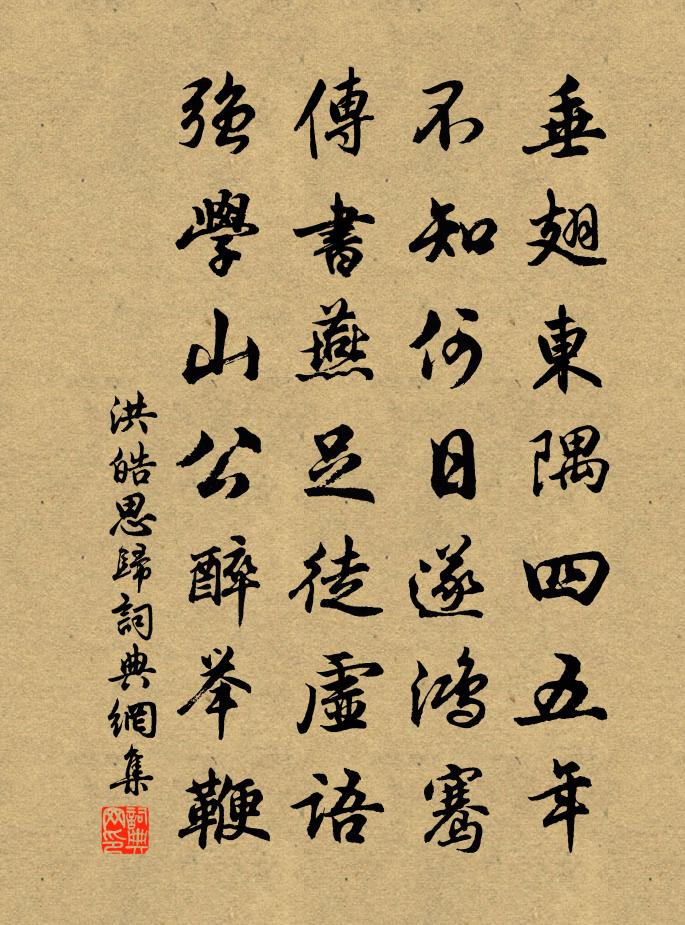 垂翅東隅四五年
不知何日遂鴻騫
傳書燕足徒虛語
強學山公醉举鞭
洪皓思歸詞典網集
詞典網印